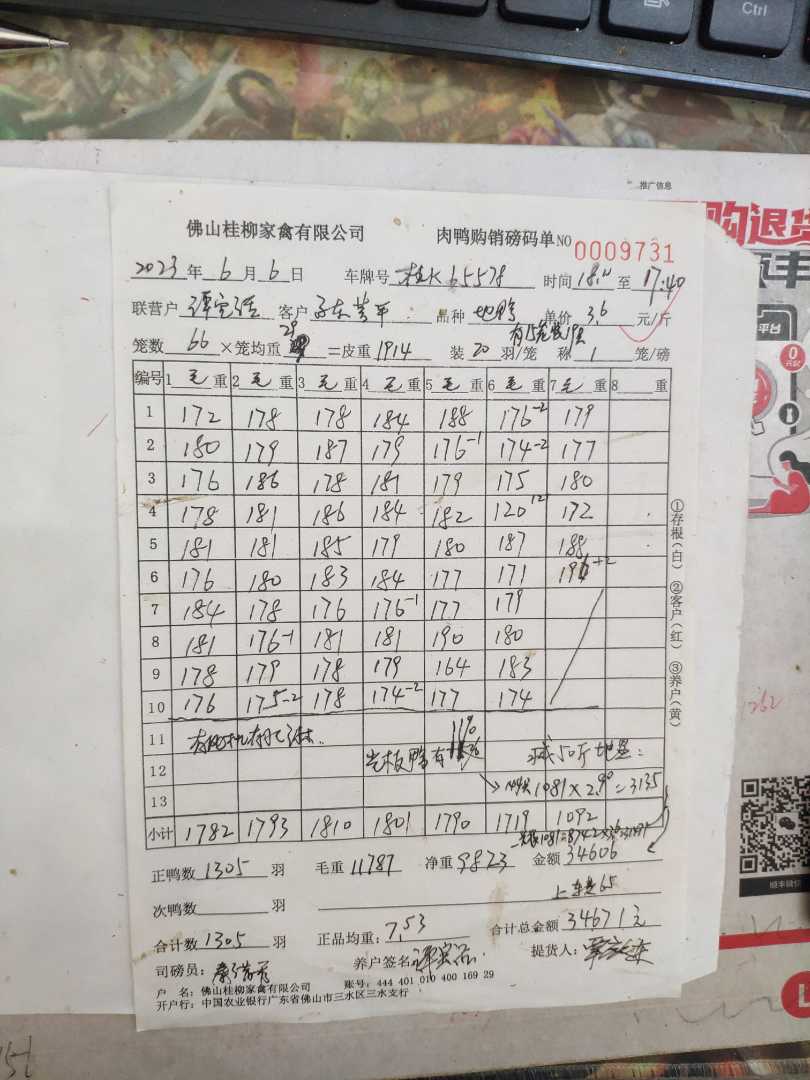 Ctrl
推广信息
购退货
顺丰
平台
0元起
佛山桂柳家禽有限公司 肉鸭购销磅码单 NO 0009731
2023 年 6 月 6 日 车牌号 桂K65578 时间 18:11 至 17:40
联营户 客户 品种 地鸭 单价 3.6 元/斤
笼数 66 ×笼均重 29 =皮重 1914 装 20 羽/笼 称 1 笼/磅
编号 1 毛 重 2 毛 重 3 毛 重 4 毛 重 5 毛 重 6 毛 重 7 毛 重 8 重
1 172 178 178 184 188 176-2 179
2 180 179 187 179 176-1 174-2 177
3 176 186 178 181 179 175 180
4 178 181 186 184 182 120 172
5 181 181 185 179 180 187 188
6 176 180 183 184 177 171
7 184 178 176 176-1 177 179
8 181 176-1 181 181 190 180
9 178 179 178 179 164 183
10 176 175-2 178 174-2 177 174
11
12 光板鸭有 减50斤地
13 1081×2.9=3135
小计 1782 1793 1810 1801 1790 1719 1092
正鸭数 1305 羽 毛重 11787 净重 9823 金额 34606
次鸭数 羽 上车费65
合计数 1305 羽 正品均重: 7.53 合计总金额 34671元
司磅员: 养户签名 提货人:
户 名: 佛山桂柳家禽有限公司 账号: 444 401 010 400 169 29
开户行: 中国农业银行广东省佛山市三水区三水支行
①存根(白) ②客户(红) ③养户(黄)
262
顺丰微信